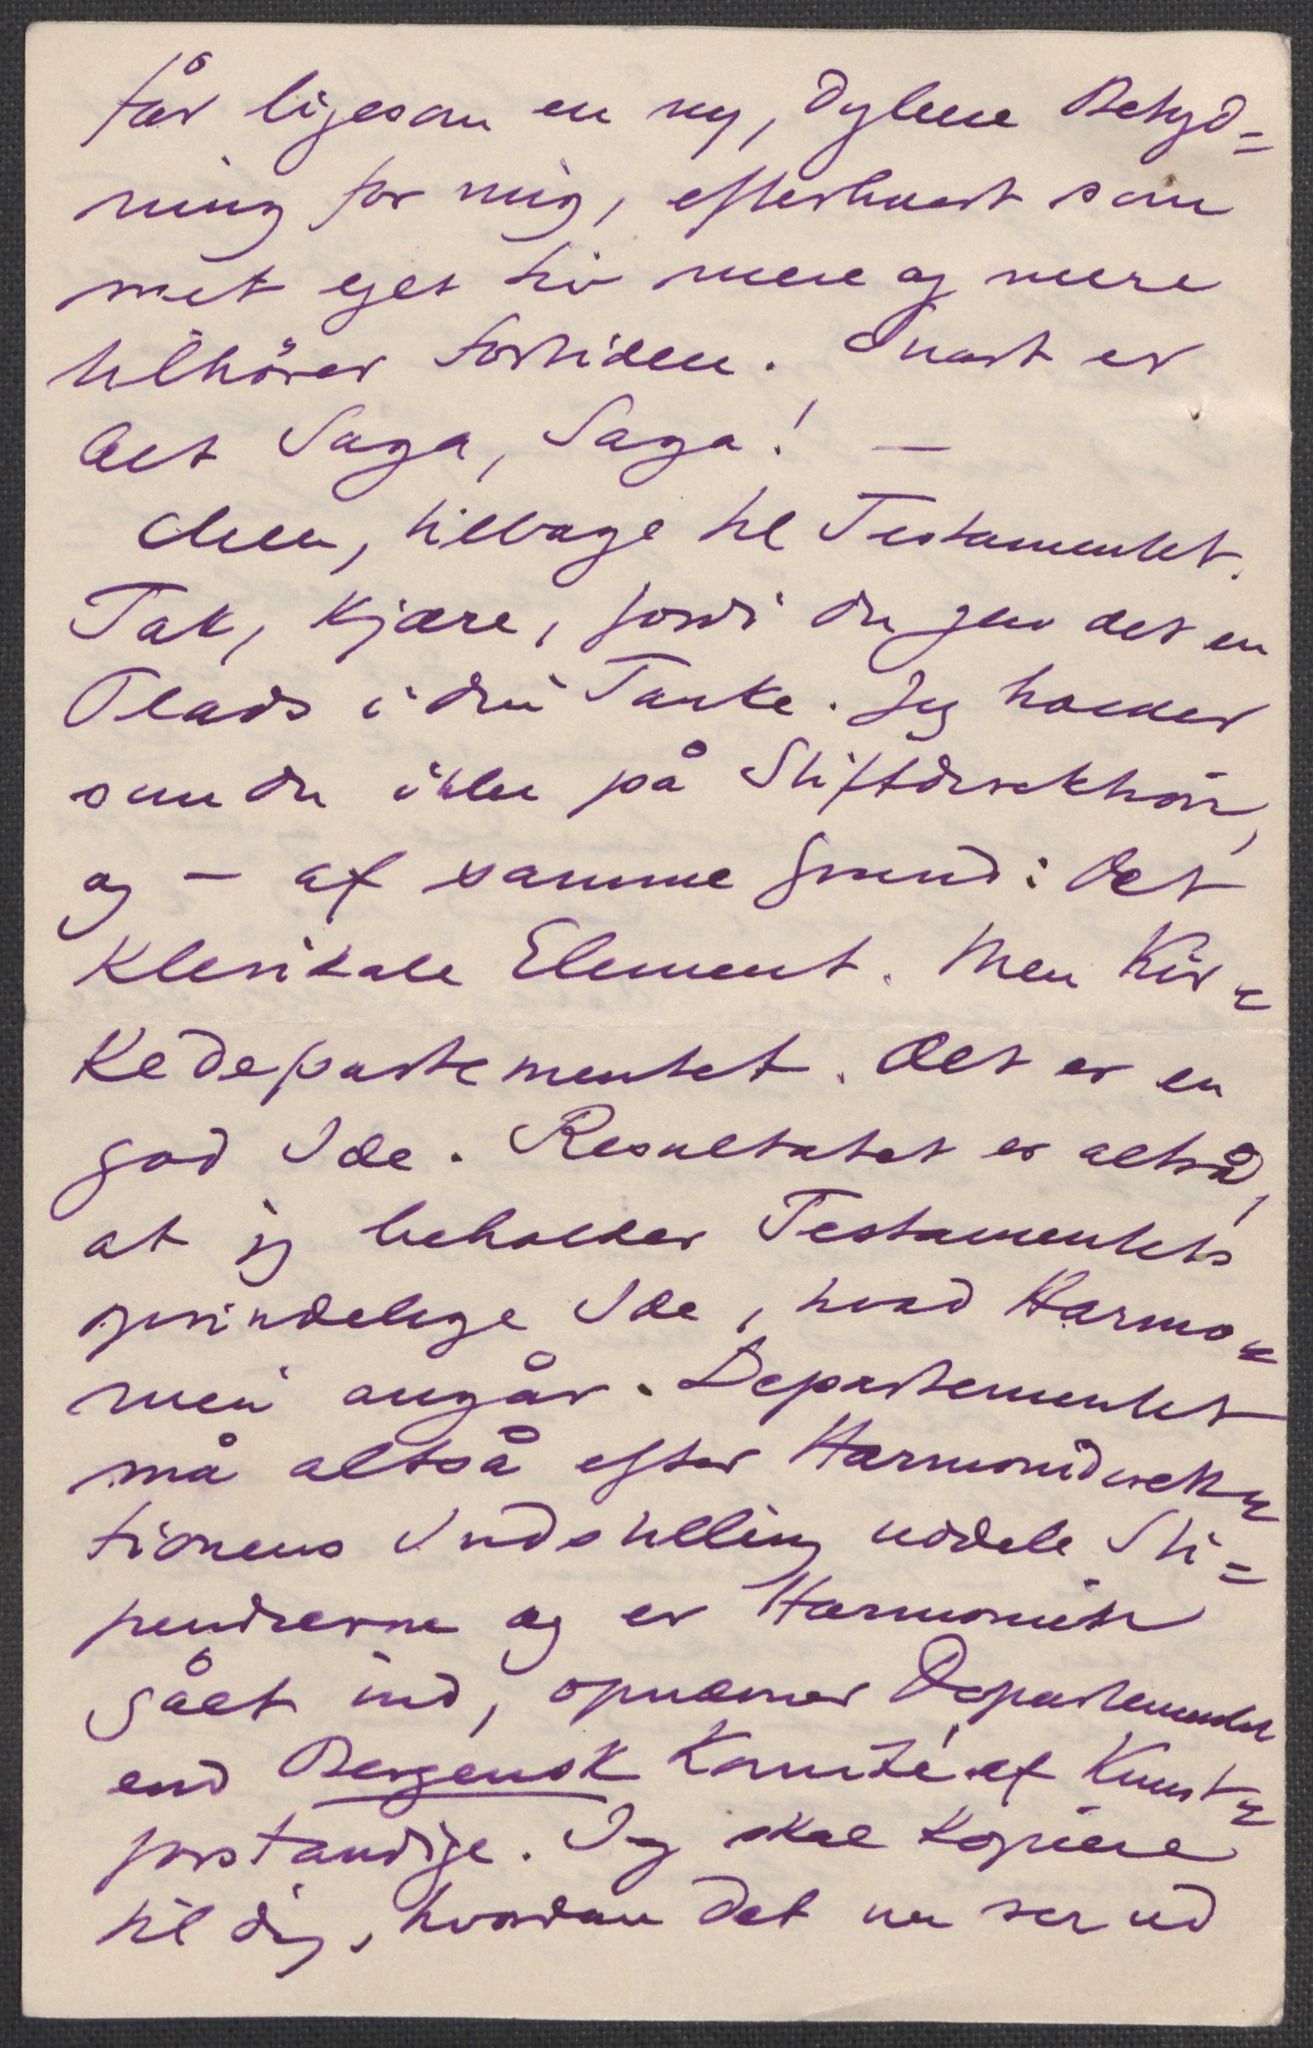 får ligesom en ny, dybere Betyd=
ning for mig, efterhvert som
mit eget Liv mere og mere
tilhører Fortiden. Snart er
Alt Saga, Saga! —
Men, tilbage til Testamentet.
Tak, Kjære, fordi du gav det en
Plads i din Tanke. Jeg holder
som du ikke på Stiftdirektion,
og — af samme Grund: Det
klerikale Element. Men Kir=
kedepartementet. Det er en
god Ide. Resultatet er altså,
at jeg beholder Testamentets
oprindelige Ide, hvad Harmo=
nien angår. Departementet
må altså efter Harmonidirek=
tionens Indstilling uddele Sti=
pendierne og er Harmonien
gået ind, opnævner Departementet
end Bergensk Komité af Kunst=
forstandige. Jeg skal kopiere
til dig, hvordan det nu ser ud